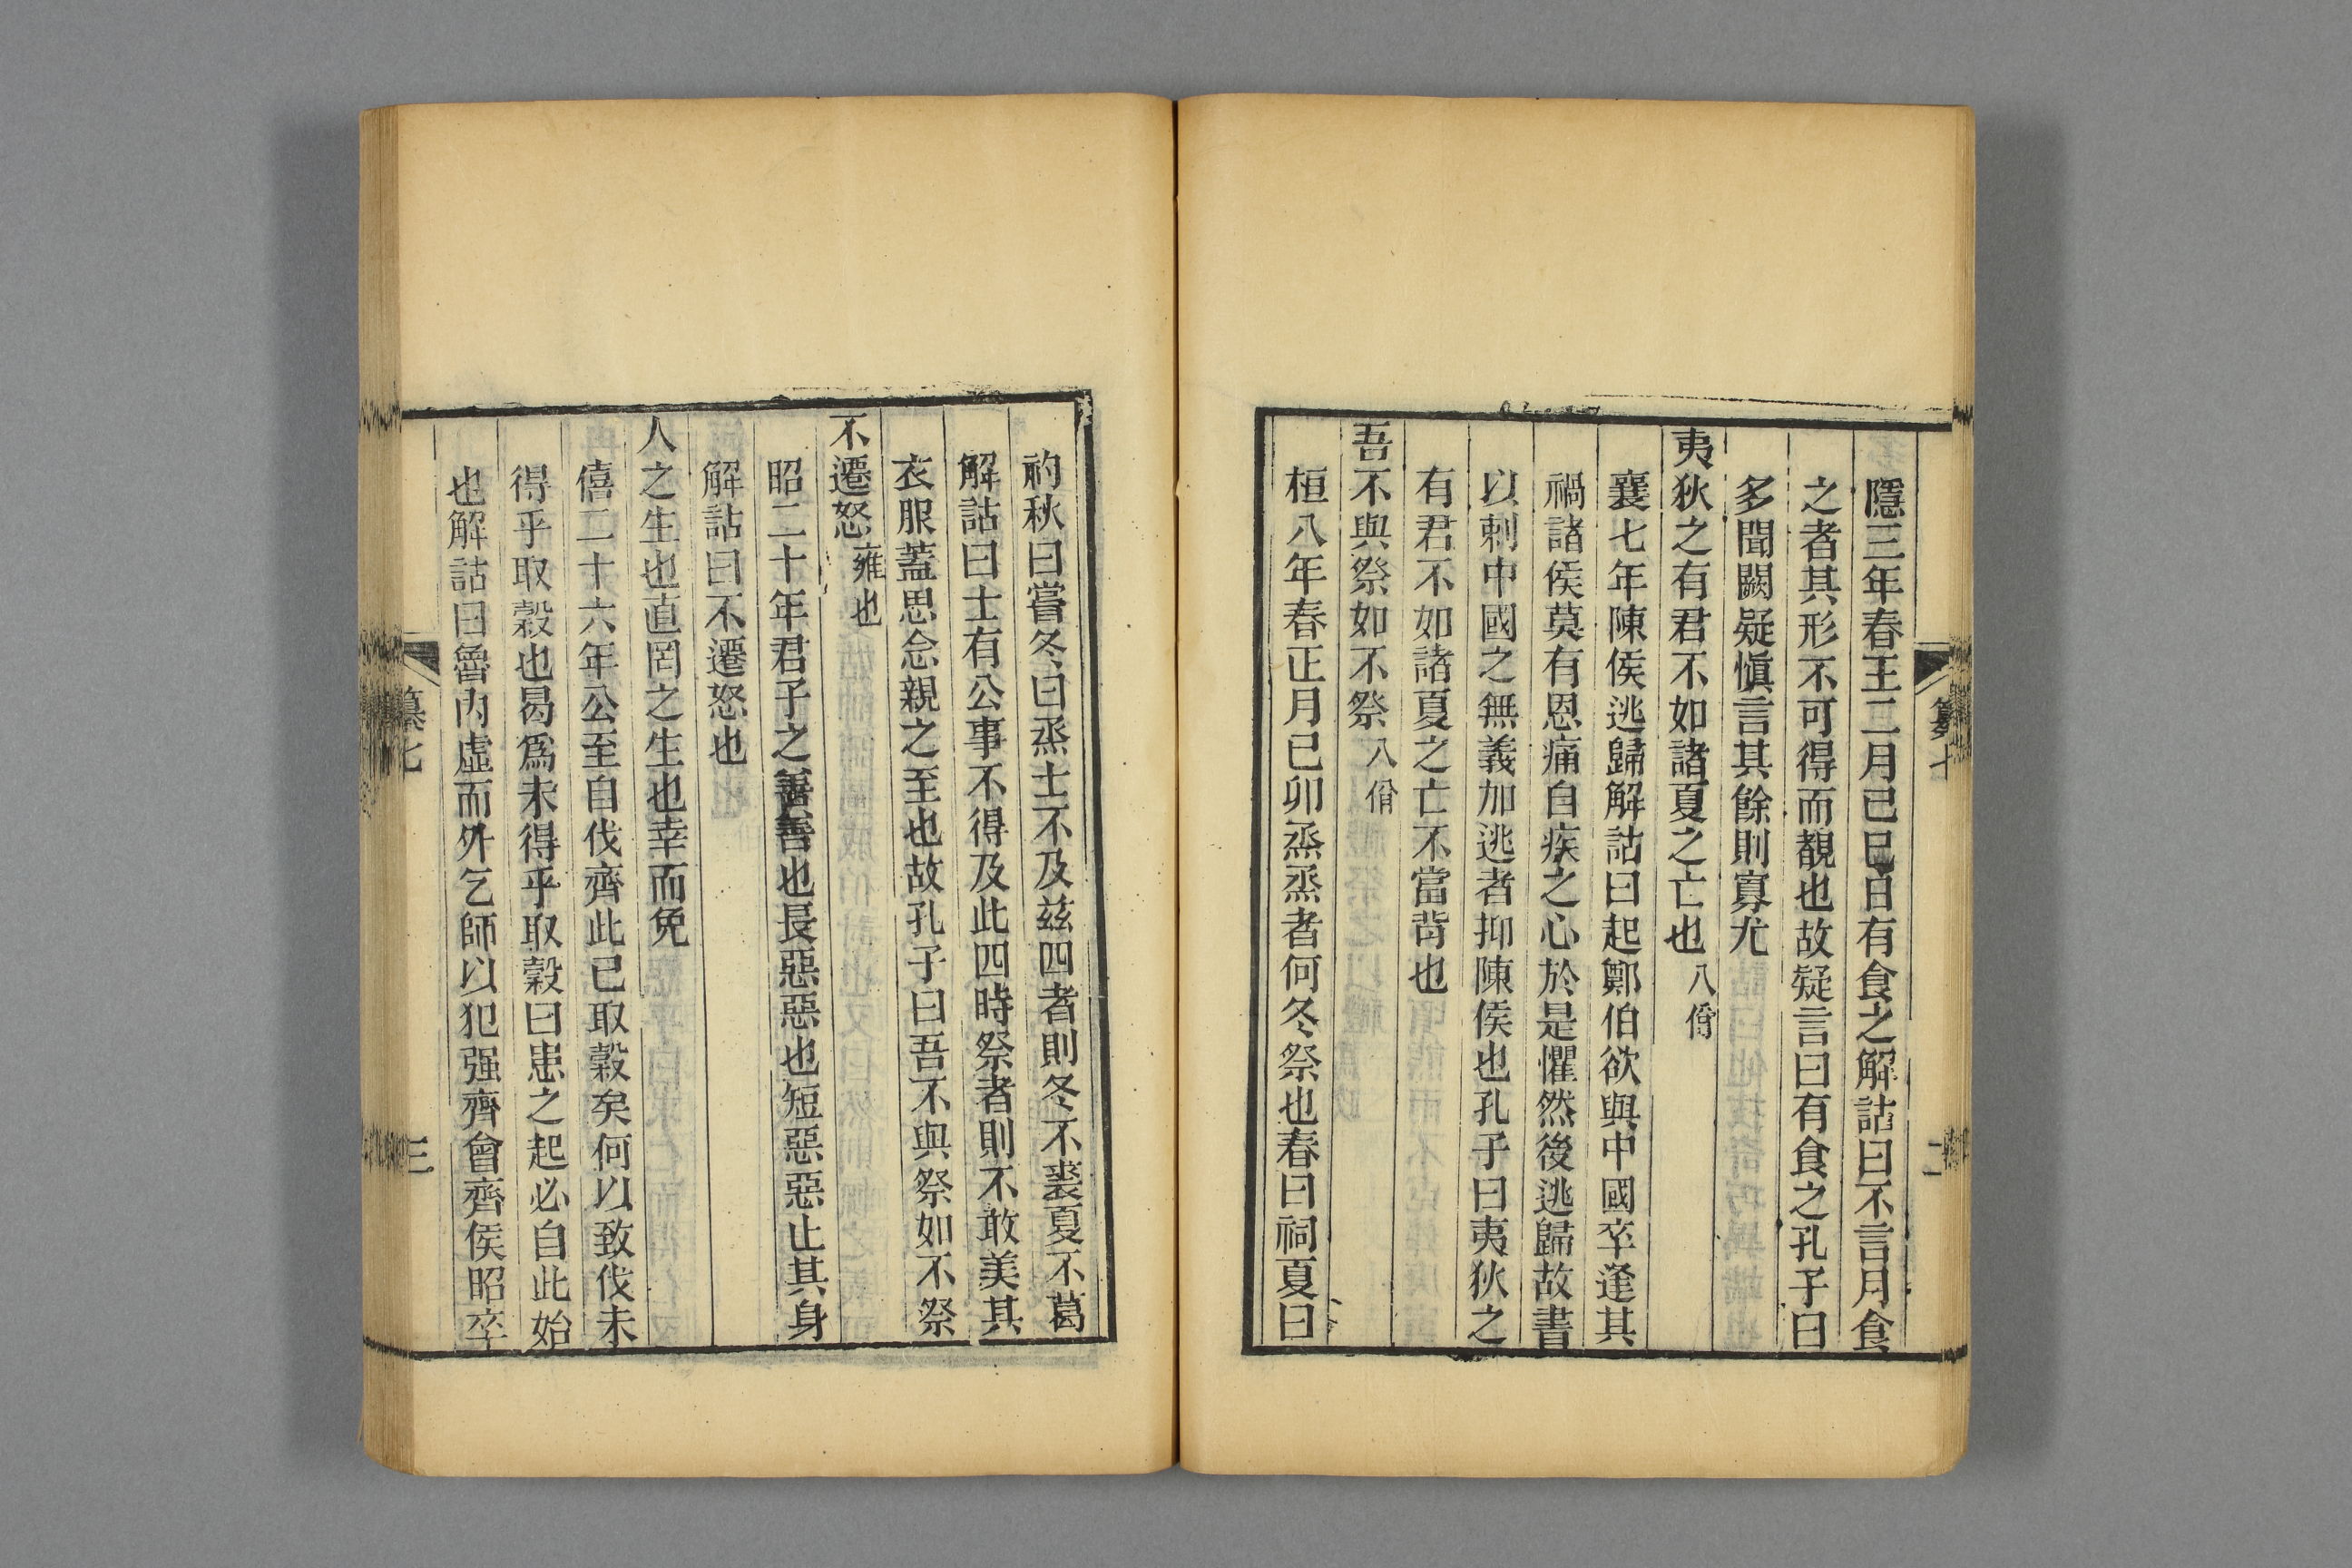 隱三年春王二月己巳日有食之解詁曰不言月食
之者其形不可得而覩也故疑言曰有食之孔子曰
多聞闕疑愼言其餘則寡尤
夷狄之有君不如諸夏之亡也八佾
襄七年陳侯逃歸解詁曰起鄭伯欲與中國卒逢其
禍諸侯莫有恩痛自疾之心於是懼然後逃歸故書
以刺中國之無義加逃者抑陳侯也孔子曰夷狄之
有君不如諸夏之亡不當背也
吾不與祭如不祭八佾
桓八年春正月己卯烝烝者何冬祭也春曰祠夏曰
礿秋曰嘗冬曰烝士不及茲四者則冬不裘夏不葛
解詁曰士有公事不得及此四時祭者則不敢美其
衣服蓋思念親之至也故孔子曰吾不與祭如不祭
不遷怒雍也
昭二十年君子之善善也長惡惡也短惡惡止其身
解詁曰不遷怒也
人之生也直罔之生也幸而免
僖二十六年公至自伐齊此已取穀矣何以致伐未
得乎取穀也曷爲未得乎取穀曰患之起必自此始
也解詁曰魯內虛而外乞師以犯强齊會齊侯昭卒
纂七
三